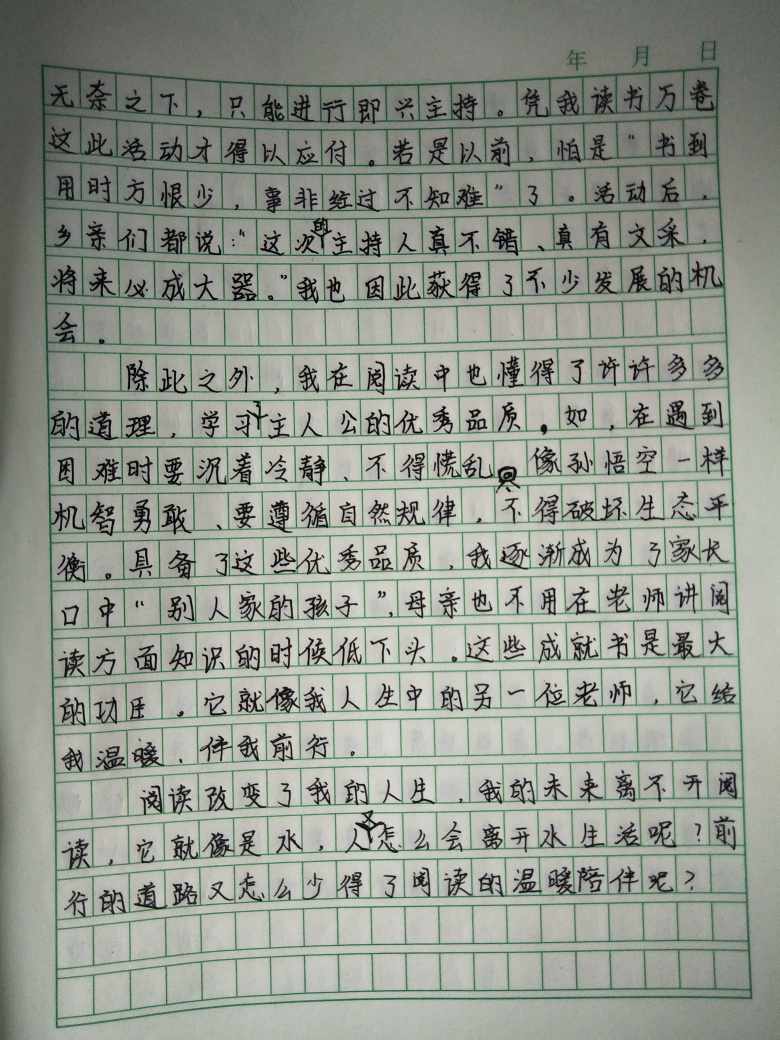 年 月 日
无奈之下，只能进行即兴主持。凭我读书万卷
这此活动才得以应付。若是以前，怕是“书到
用时方恨少，事非经过不知难”了。活动后，
乡亲们都说：“这次的主持人真不错、真有文采，
将来必成大器。”我也因此获得了不少发展的机
会。
除此之外，我在阅读中也懂得了许许多多
的道理，学习了主人公的优秀品质。如，在遇到
困难时要沉着冷静、不得慌乱。像孙悟空一样
机智勇敢、要遵循自然规律，不得破坏生态平
衡。具备了这些优秀品质，我逐渐成为了家长
口中“别人家的孩子”，母亲也不用在老师讲阅
读方面知识的时候低下头。这些成就书是最大
的功臣。它就像我人生中的另一位老师，它给
我温暖、伴我前行。
阅读改变了我的人生，我的未来离不开阅
读，它就像是水，人又怎么会离开水生活呢？前
行的道路又怎么少得了阅读的温暖陪伴呢？